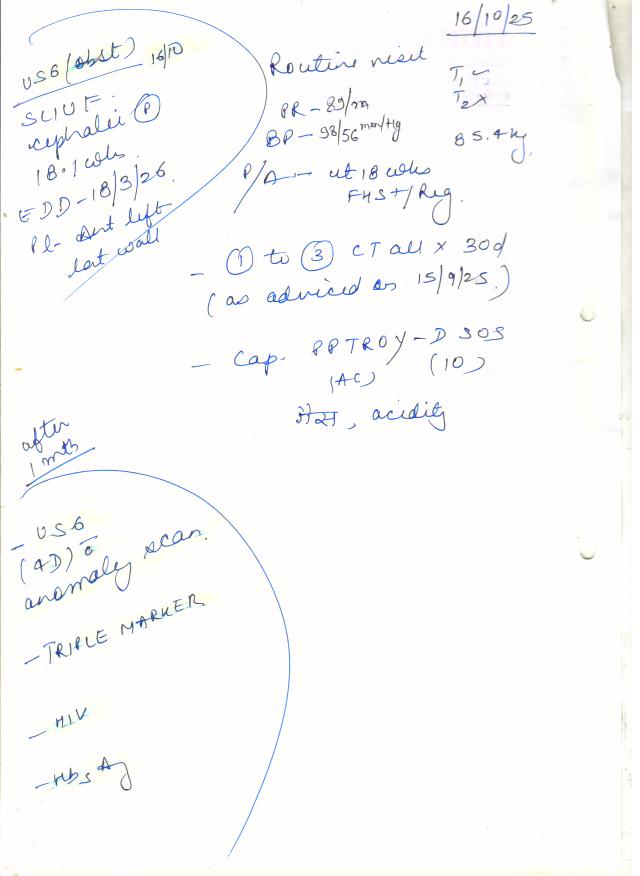 16/10/25
USG (obst) 16/10
SLIUF
cephalic (P)
18.1 wks
EDD - 18/3/26
Pl - Ant left
lat wall
Routine visit
PR - 89/m
BP - 98/56 mm/Hg
P/A - ut 18 wks
FHS+/Reg.
T1 ✓
T2 x
85.4 kg
- ① to ③ CT all x 30d
(as adviced on 15/9/25.)
- Cap. PPTROY-D SOS
(AC) (10)
गैस, acidity
after
1 mth
- USG
(4D) c̄
anomaly scan.
- TRIPLE MARKER
- HIV
- HbsAg